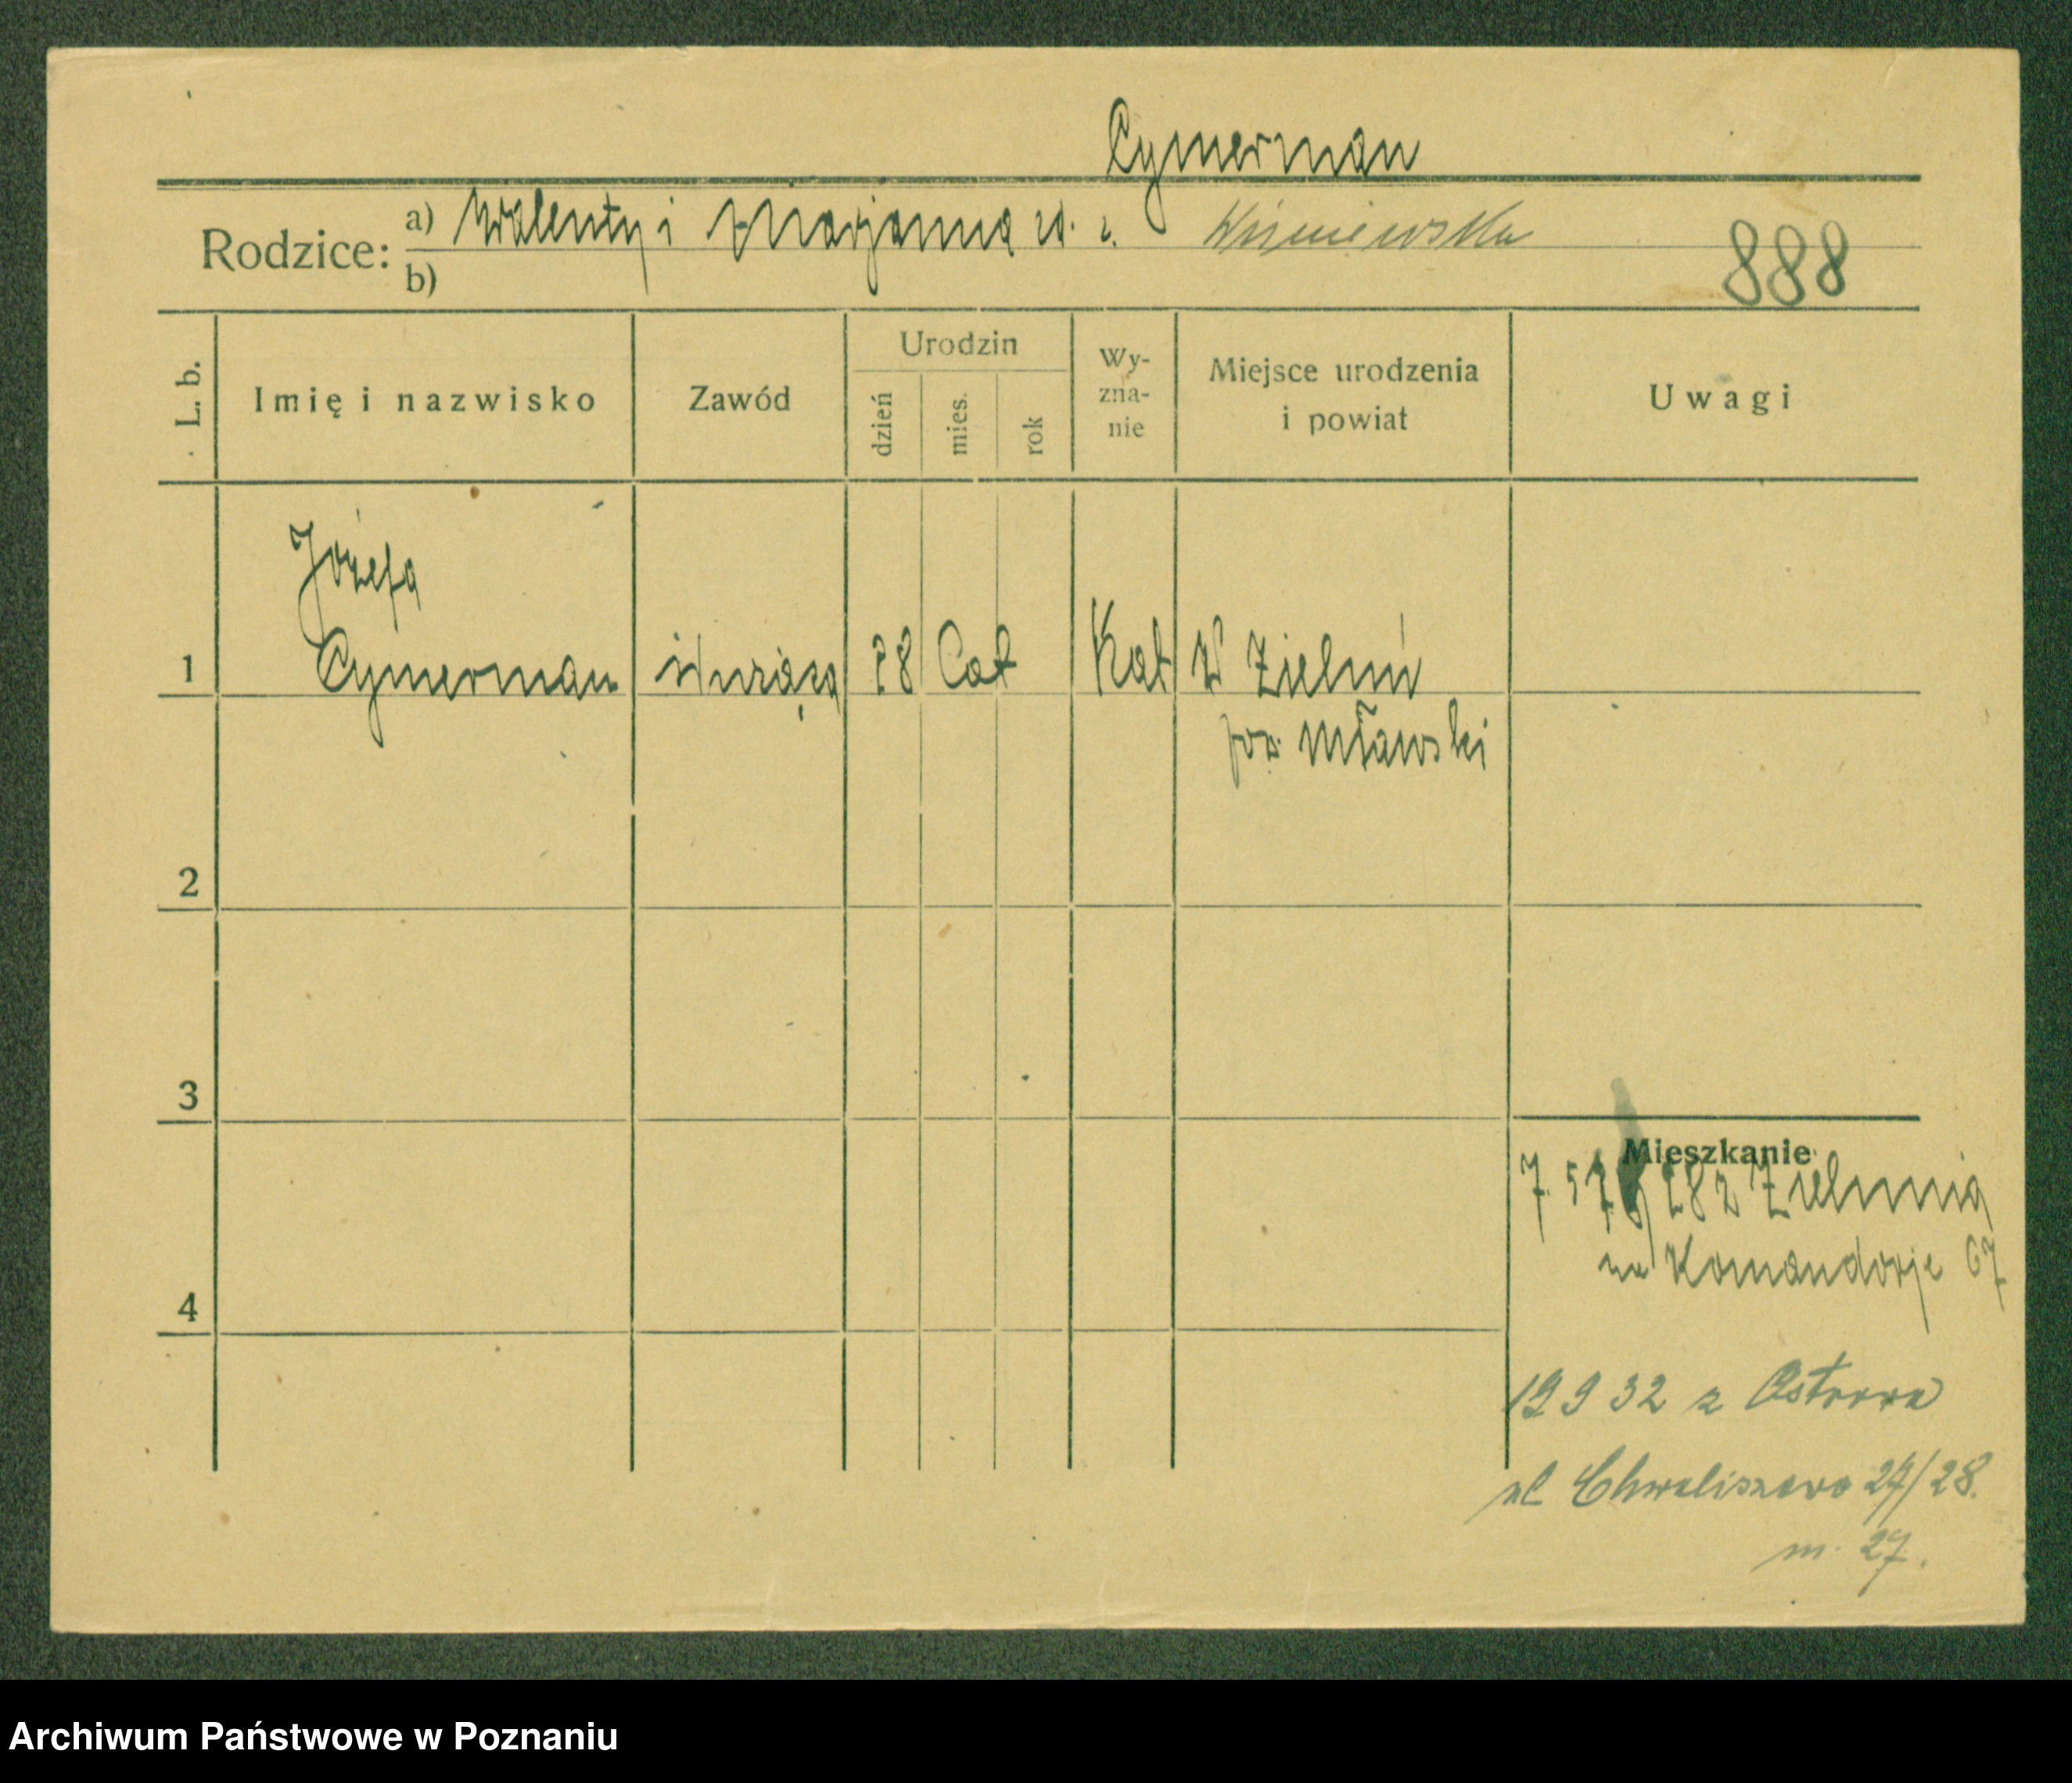 Cymerman
Rodzice: a) Walenty i Marjanna
b)
Wiśniewska
888
L. b.
Imię i nazwisko
Zawód
Urodzin
dzień
mies.
rok
Wy-
zna-
nie
Miejsce urodzenia
i powiat
Uwagi
Józefa
1 Cymerman służąca 28 lat Kat W Zieluń
pow Mławski
2
3
Mieszkanie
Zielunia
na Komandorje 67
4
19 9 32 z Ostrowa
ul Chwaliszewo 27/28.
m. 27.
Archiwum Państwowe w Poznaniu